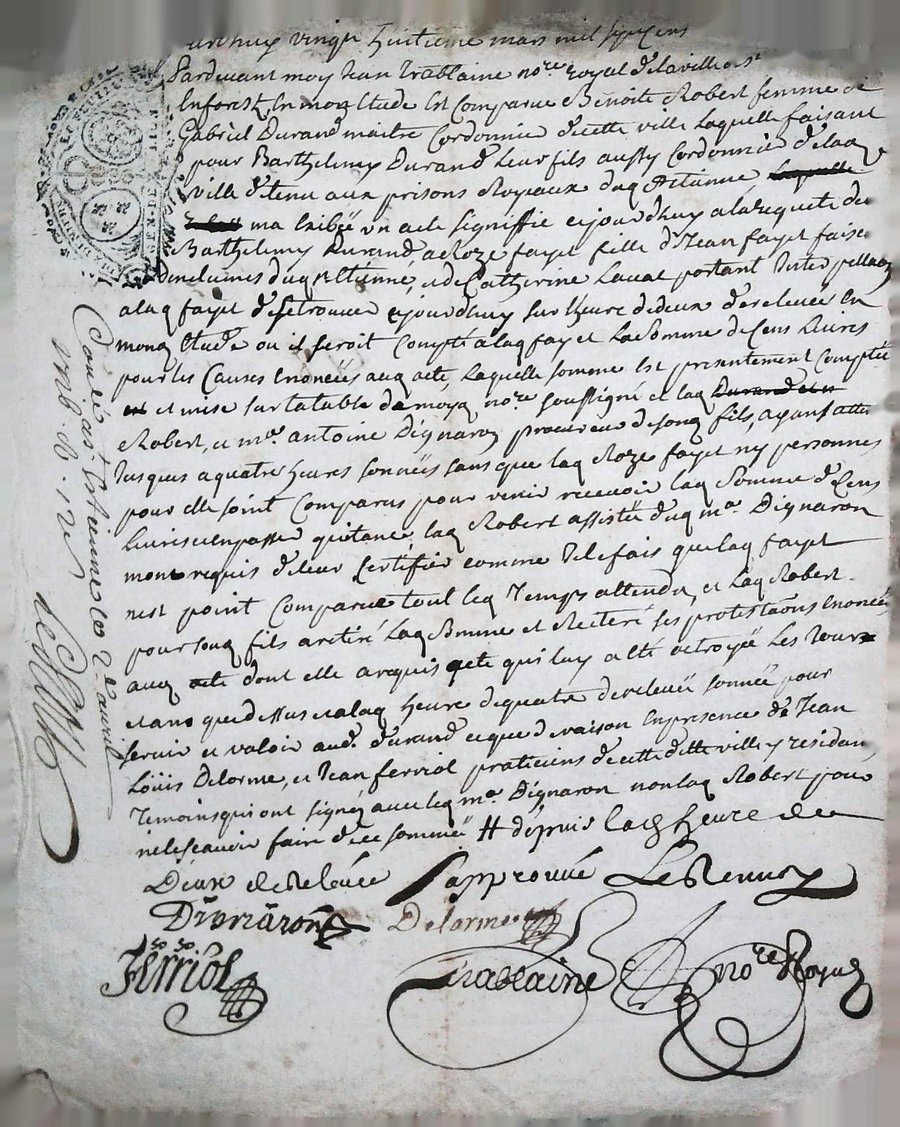 vingt huitieme mars mil sept cens
Pardevant moy Jean trablaine no.re royal dela ville de st
Enforest En mon Etude Est Comparue Benoite Robert femme de
Gabriel Durand maitre Cordonnie decette ville Laquelle faisant
pour Barthelemy Durand Leur fils aussy Cordonnie dela
ville detenu aux prisons Royaux dud Etienne
ma Exibée un acte signiffié cejourdhuy ala requete de
Barthelemy Durand, a Roze fayet fille de Jean fayet
denclumes dud st Etienne, et de Catherine Laval portant Interpellaon
alad fayet de se trouver cejourdhuy sur lheure de deux de relevée En
mond Etude ou il seroit Compté alad fayet La somme de Cens Livres
pour les Causes Enoncées aud acte, Laquelle somme Est presentement Comptée
et mise sur la table de moyd no.re soussigné et lad Durand
Robert, et m.e antoine Dignaron procureur de sond fils, ayant attendu
Jusques a quatre heures sonnées sans que lad Roze fayet ny personnes
pour elle soint Comparus pour venir recevoir lad somme de Cens
Livres et en passer quitance lad Robert assistée dud m.e Dignaron
mont requis de leur Certifier comme Je le fais que lad fayet
nest point Comparue tout led Temps attendu, et Lad Robert
pour sond fils a retiré Lad somme et Reiteré ses protestaons Enoncées
aud acte dont elle a requis acte qui luy a Eté octroyé Les Jour
et an que dessus et alad heure de quatre de relevée sonnée pour
servir et valoir aud. durand ce que de raison En presence de Jean
Louis Delorme, et Jean ferriol praticiens de cette ditte ville y residans
Temoins qui ont signés avec led m.e Dignaron non lad Robert pour
ne le scavoir faire de ce sommée # depuis lad heure de
Deux de relevée Japprouvé Le Renvoy
Dignaron Delorme
Ferriol trablaine no.re Royal
Con.lé a st Etienne le 2 avril